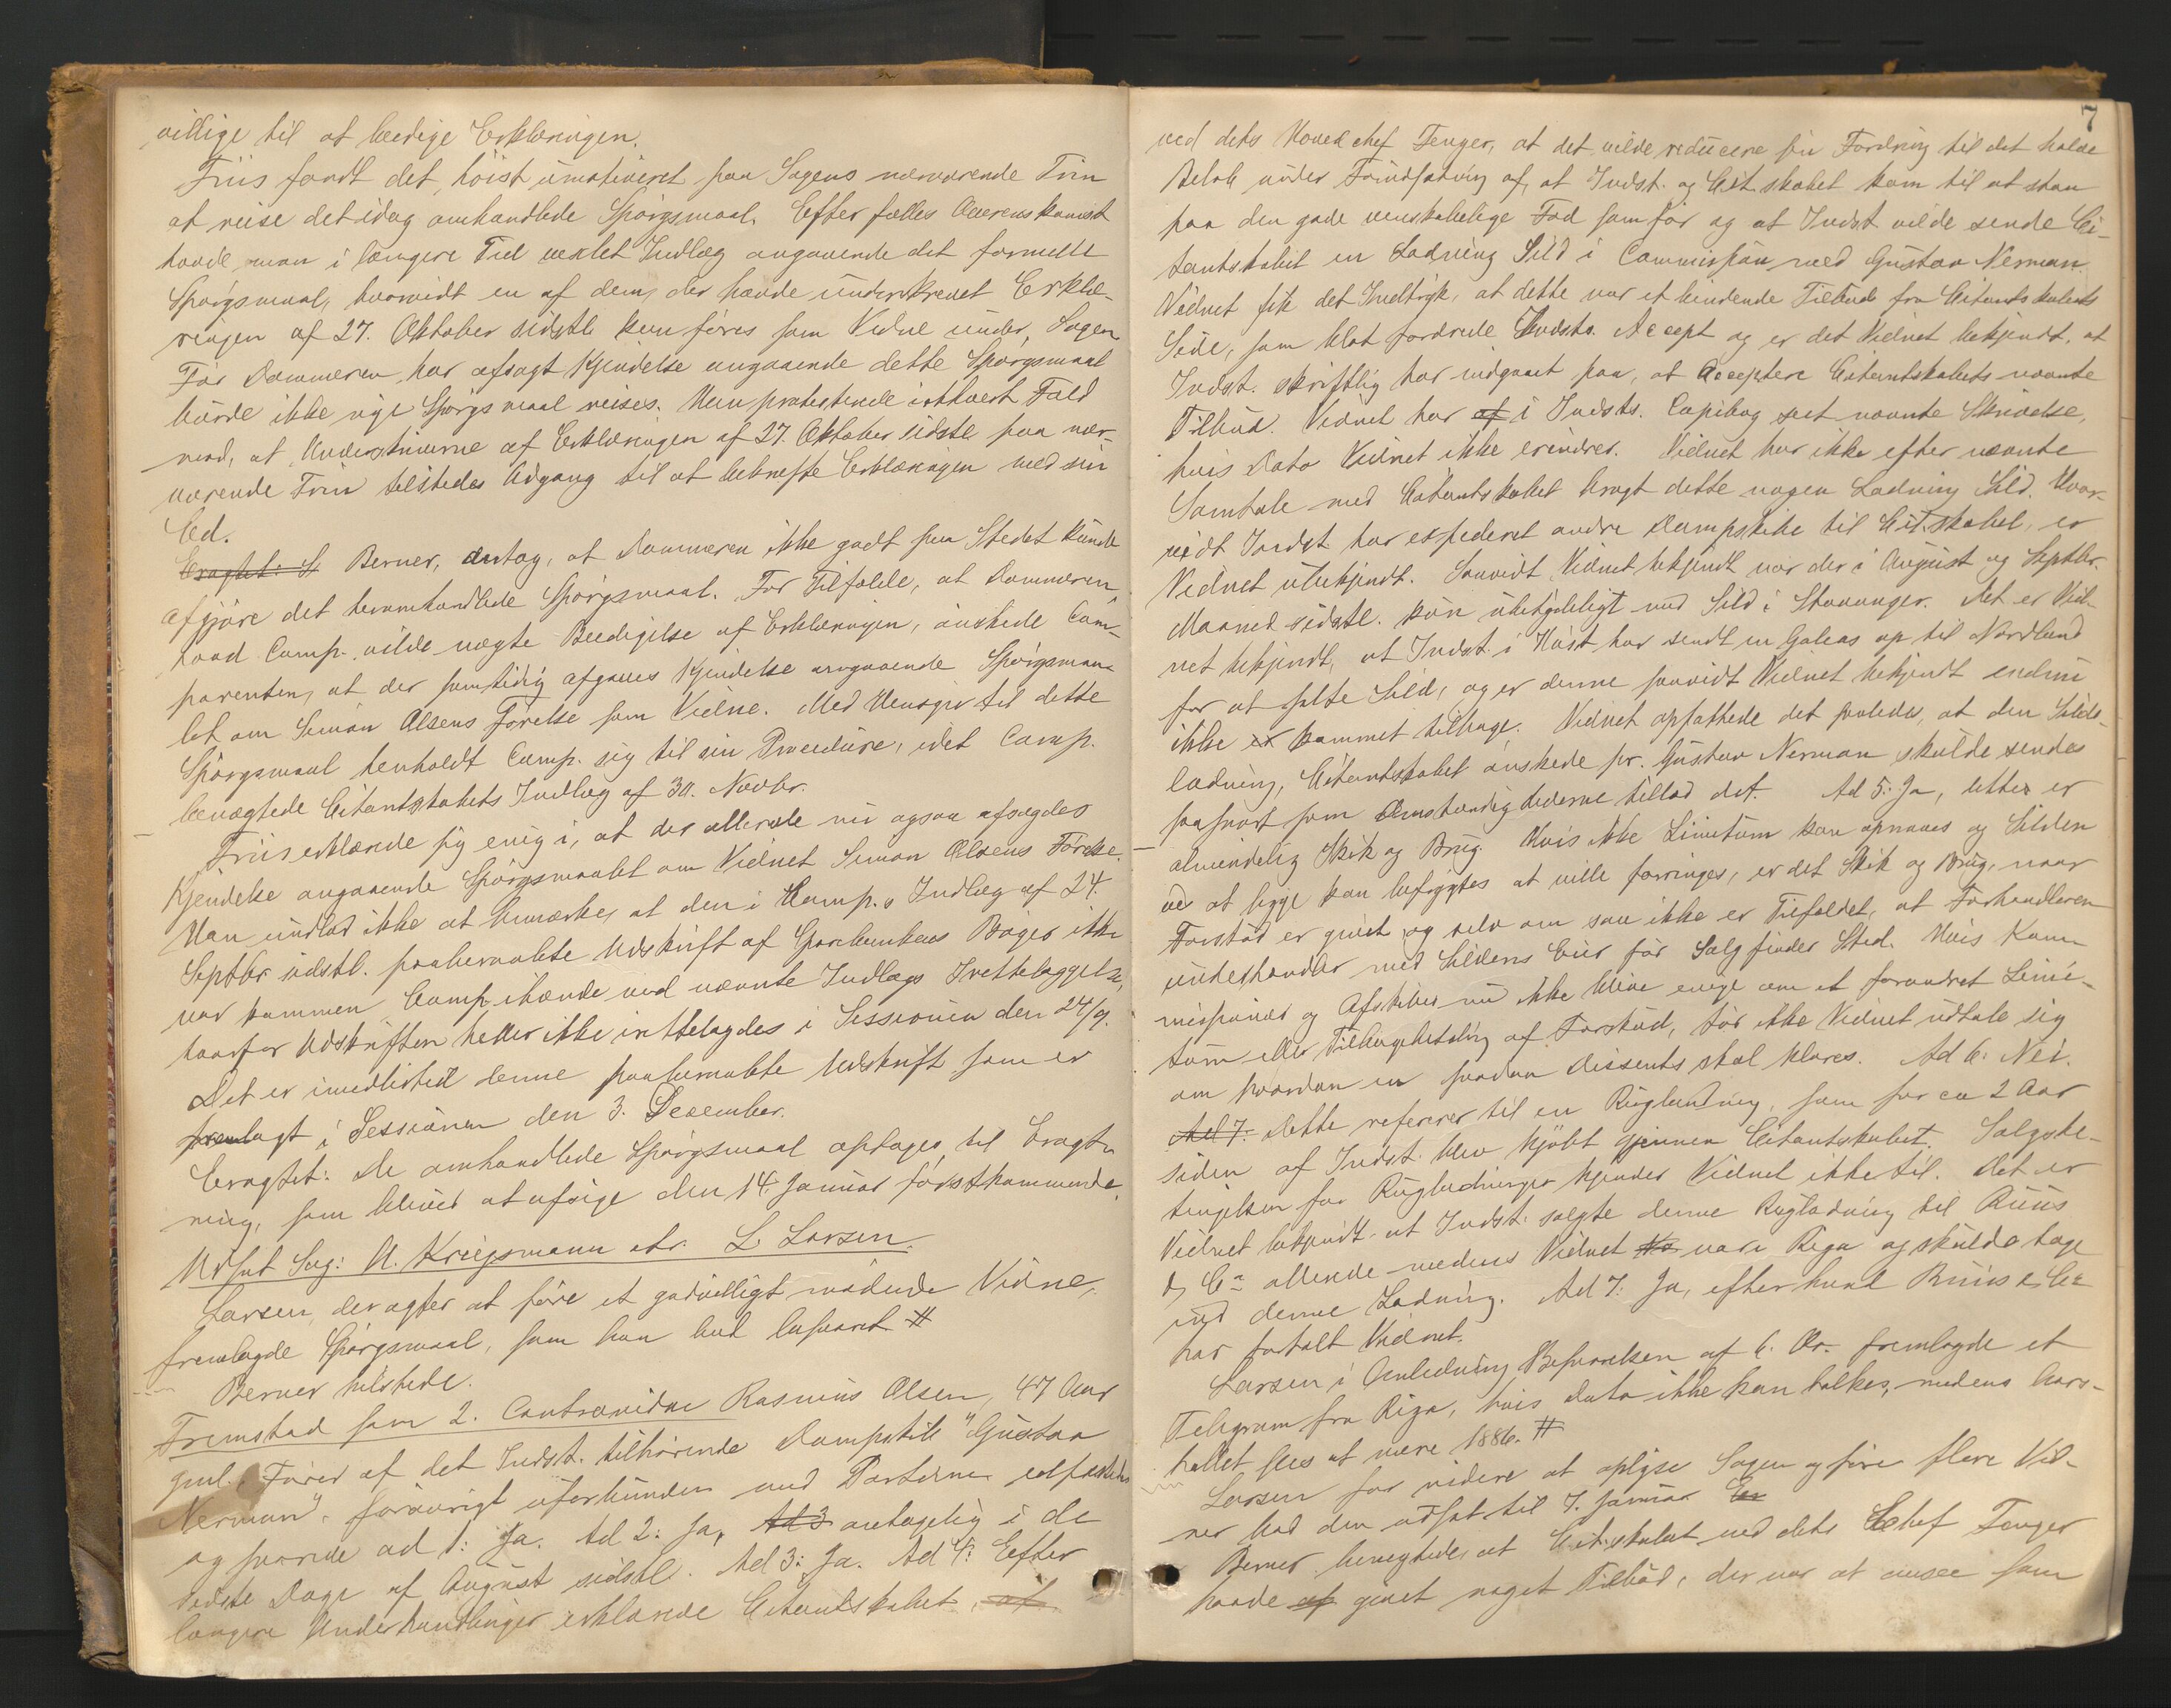 villige til at beedige Erklæringen.
Friis fandt det høist umotiveret paa Sagens nærværende Trin
at reise det idag omhandlede Spørgsmaal. Efter fælles Overenskomst
havde man i længere Tid vexlet Indlæg angaaende det formelle
Spørgsmaal, hvorvidt en af dem, der havde underskrevet Erklæ-
ringen af 27. Oktober sidstl. kan føres som Vidne under Sagen
Før Dommeren har afsagt Kjendelse angaaende dette Spørgsmaal
burde ikke nye Spørgsmaal reises. Man protesterede i ethvert Fald
mod, at Underskriverne af Erklæringen af 27. Oktober sidstl. paa nær-
værende Trin tilstedes Adgang til at bekræfte Erklæringen med sin
Ed.
Eragtet: S Berner, antog, at Dommeren ikke godt paa Stedet kunde
afgjøre det heromhandlede Spørgsmaal. For Tilfælde, at Dommeren
mod Comp. vilde nægte Beedigelse af Erklæringen, ønskede Com-
parenten, at der samtidig afgaves Kjendelse angaaende Spørgsmaa-
let om Simon Olsens Førelse som Vidne. Med Hensyn til dette
Spørgsmaal henholdt Comp. sig til sin Procedure, idet Comp.
benægtede Citantskabets Indlæg af 30. Novbr.
Friis erklærede sig enig i, at der allerede nu ogsaa afsagdes
Kjendelse angaaende Spørgsmaalet om Vidnet Simon Olsens Førelse.
Man undlod ikke at bemærke, at den i Komp.s Indlæg af 24.
Septbr sidstl. paaberaabte Udskrift af Sparebankens Bøger ikke
var kommen Comp. ihænde ved nævnte Indlægs Irettelæggelse,
hvorfor Udskriften heller ikke irettelagdes i Sessionen den 24/9.
Det er imidlertid denne paaberaabte Udskrift som er
fremlagt i Sessionen den 3. Desember.
Eragtet: De omhandlede Spørgsmaal optages til Eragt-
ning, som bliver at afsige den 14. Januar førstkommende.
Udsat Sag: A. Kriegsmann ctr. L. Larsen.
Larsen, der agter at føre et godvilligt mødende Vidne,
fremlagde Spørgsmaal, som han bad besvaret #
Berner tilstede.
Fremstod som 2. Contravidne Rasmus Olsen, 47 Aar
gml. Fører af det Indst. tilhørende Dampskib "Gustav
Nerman", forøvrigt uforbunden med Parterne edfæstedes
og svarede ad 1: Ja. Ad 2: Ja, Ad 3 antagelig i de
sidste Dage af August sidstl. Ad 3: Ja. Ad 4: Efter
længere Underhandlinger erklærede Citantskabet, at
7
ved dets Hovedchef Fenger, at det vilde reducere sin Fordring til det halve
Beløb under Forudsætning af, at Indst. og Citskabet kom til at staa
paa den gode venskabelige Fod som før og at Indst vilde sende Ci-
tantskabet en Ladning Sild i Commission med Gustav Nerman.
Vidnet fik det Indtryk, at dette var et bindende Tilbud fra Citantskabets
Side, som blot fordrede Indsts. Accept og er det Vidnet bekjendt, at
Indst. skriftlig har indgaaet paa, at Acceptere Citantskabets nævnte
Tilbud. Vidnet har af i Indsts. Copibog seet nævnte Skrivelse,
hvis Dato Vidnet ikke erindrer. Vidnet har ikke efter nævnte
Samtale med Citantskabet bragt dette nogen Ladning Sild. Hvor-
vidt Indst har expederet andre Dampskibe til Citskabet, er
Vidnet ubekjendt. Saavidt Vidnet bekjendt var der i August og Septbr.
Maaned sidstl. kun ubetydeligt med Sild i Stavanger. Det er Vid-
net bekjendt, at Indst. i Høst har sendt en Galeas op til Nordland
for at salte Sild, og er denne saavidt Vidnet bekjendt endnu
ikke er kommet tilbage. Vidnet opfattede det saaledes, at den Silde-
ladning, Citantskabet ønskede pr. Gustav Nerman skulde sendes
saasnart som Omstændighederne tillod det. Ad 5: Ja, dette er
almindelig Skik og Brug. Hvis ikke Limitum kan opnaaes og Silden
ved at ligge kan befrygtes at ville forringes, er det Skik og Brug, naar
Forskud er givet og selv om saa ikke er Tilfældet, at Forhandleren
underhandler med Sildens Eier før Salg finder Sted. Hvis Kom-
missionær og Afskiber nu ikke blive enige om et forandret Limi-
tum eller Tilbagebetaling af Forskud, tør ikke Vidnet udtale sig
om hvordan en saadan Dissents skal klares. Ad 6: Nei.
Ad 7: Dette refererer til en Rugladning, som for ca 2 Aar
siden af Indst. blev kjøbt gjennem Citantskabet. Salgsbe-
tingelsen for Rugladninger kjender Vidnet ikke til. Det er
Vidnet bekjendt at Indst. solgte denne Rugladning til Ruus
& Co allerede medens Vidnet var i Riga og skulde tage
ind denne Ladning. Ad 7: Ja, efter hvad Ruus & Co
har fortalt Vidnet.
Larsen i Anledning Besvarelsen af 6. Qv. fremlagde et
Telegram fra Riga, hvis Dato ikke kan tolkes, medens Aars-
tallet sees at være 1886. #
Larsen for videre at oplyse Sagen og føre flere Vid-
ner bad den udsat til 7. Januar. Er
Berner benægtede, at Citskabet ved dets Chef Fenger
havde af givet noget Tilbud, der var at ansee som